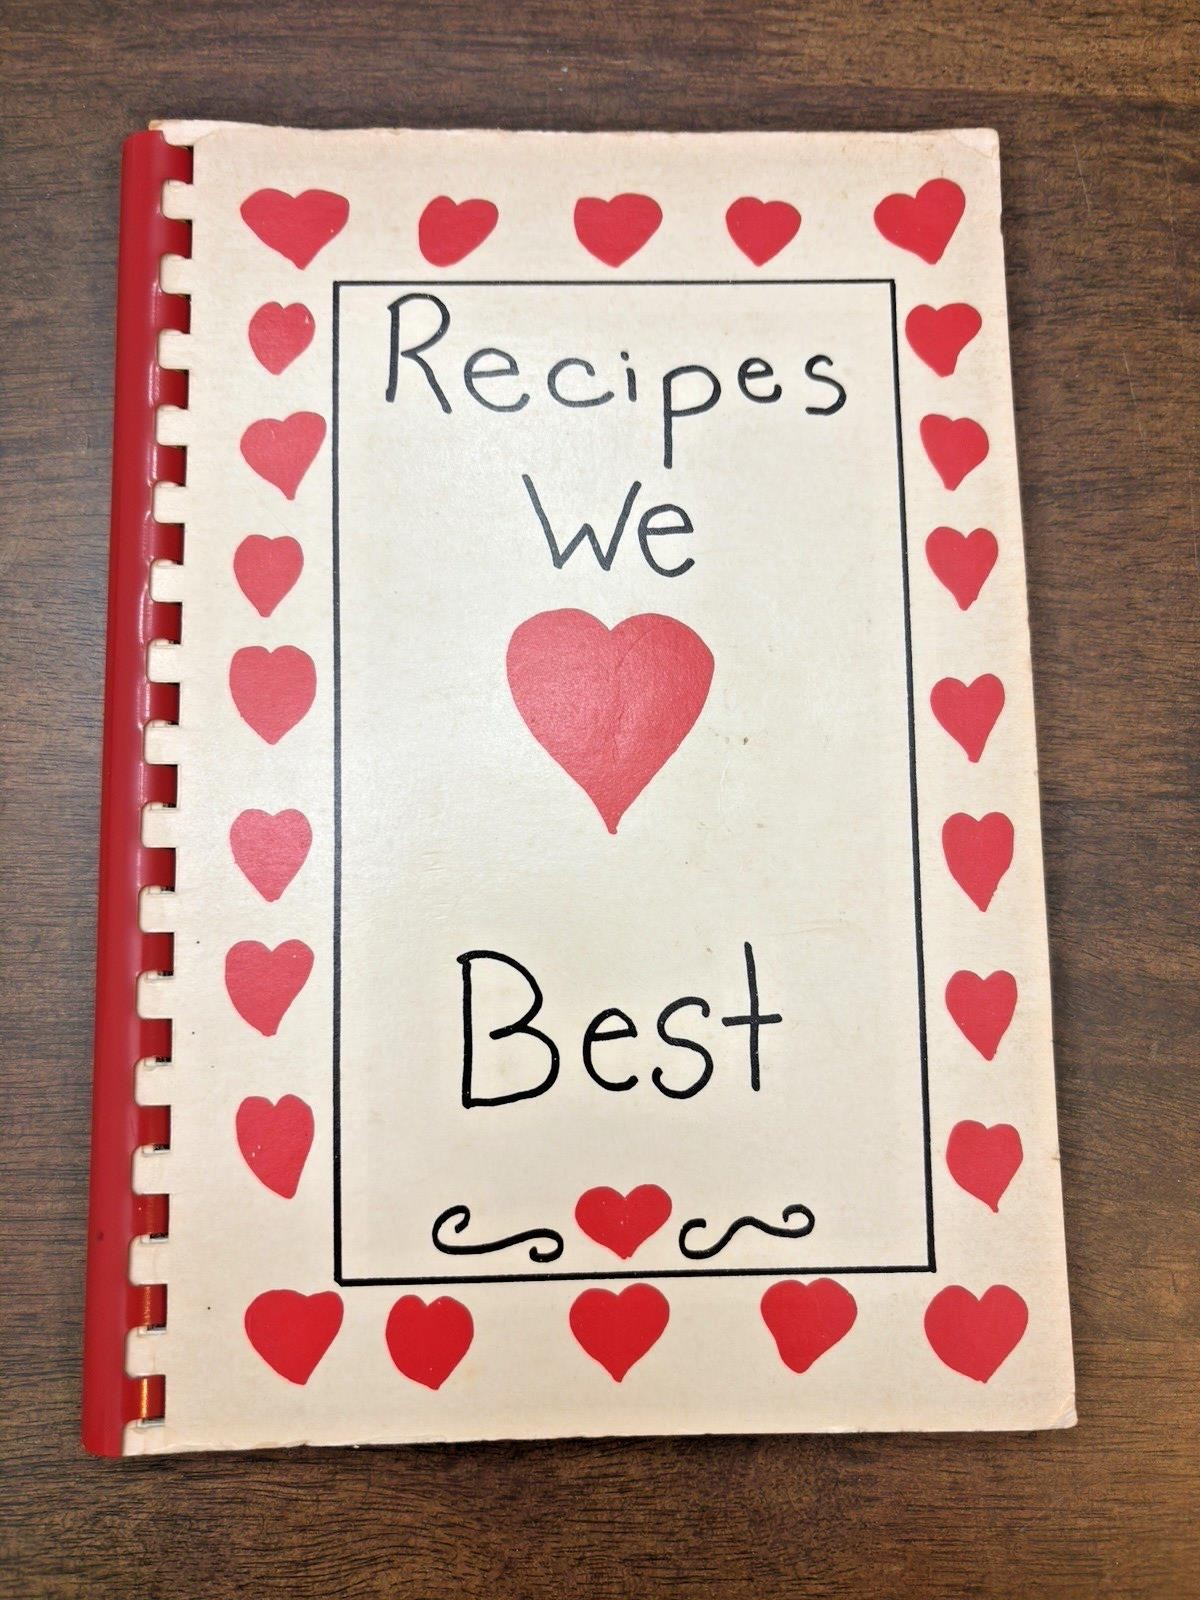 Recipes
We
Best